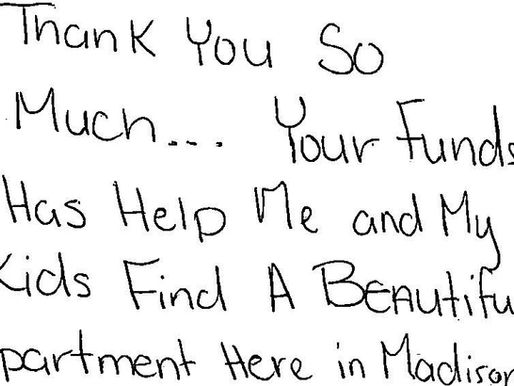 Thank You So
Much... Your Funds
Has Help Me and My
Kids Find A Beautifu
partment Here in Madison